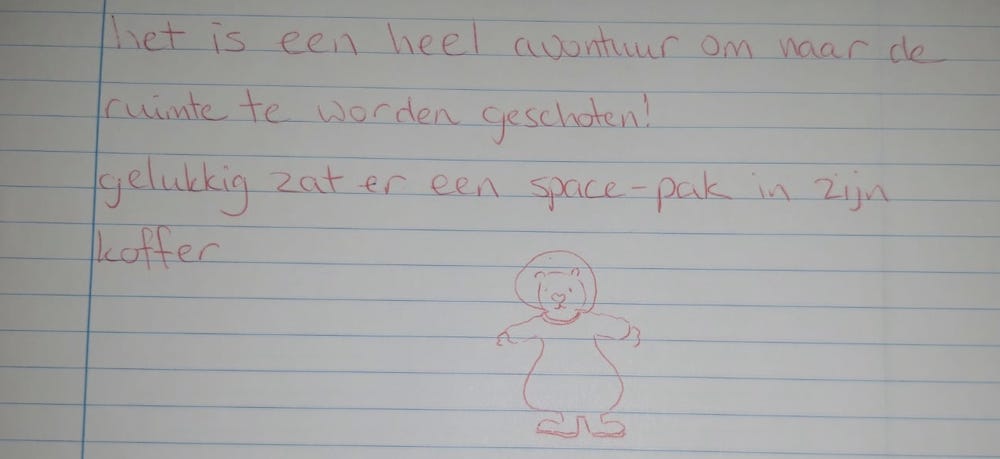 het is een heel avontuur om naar de
ruimte te worden geschoten!
gelukkig zat er een space-pak in zijn
koffer